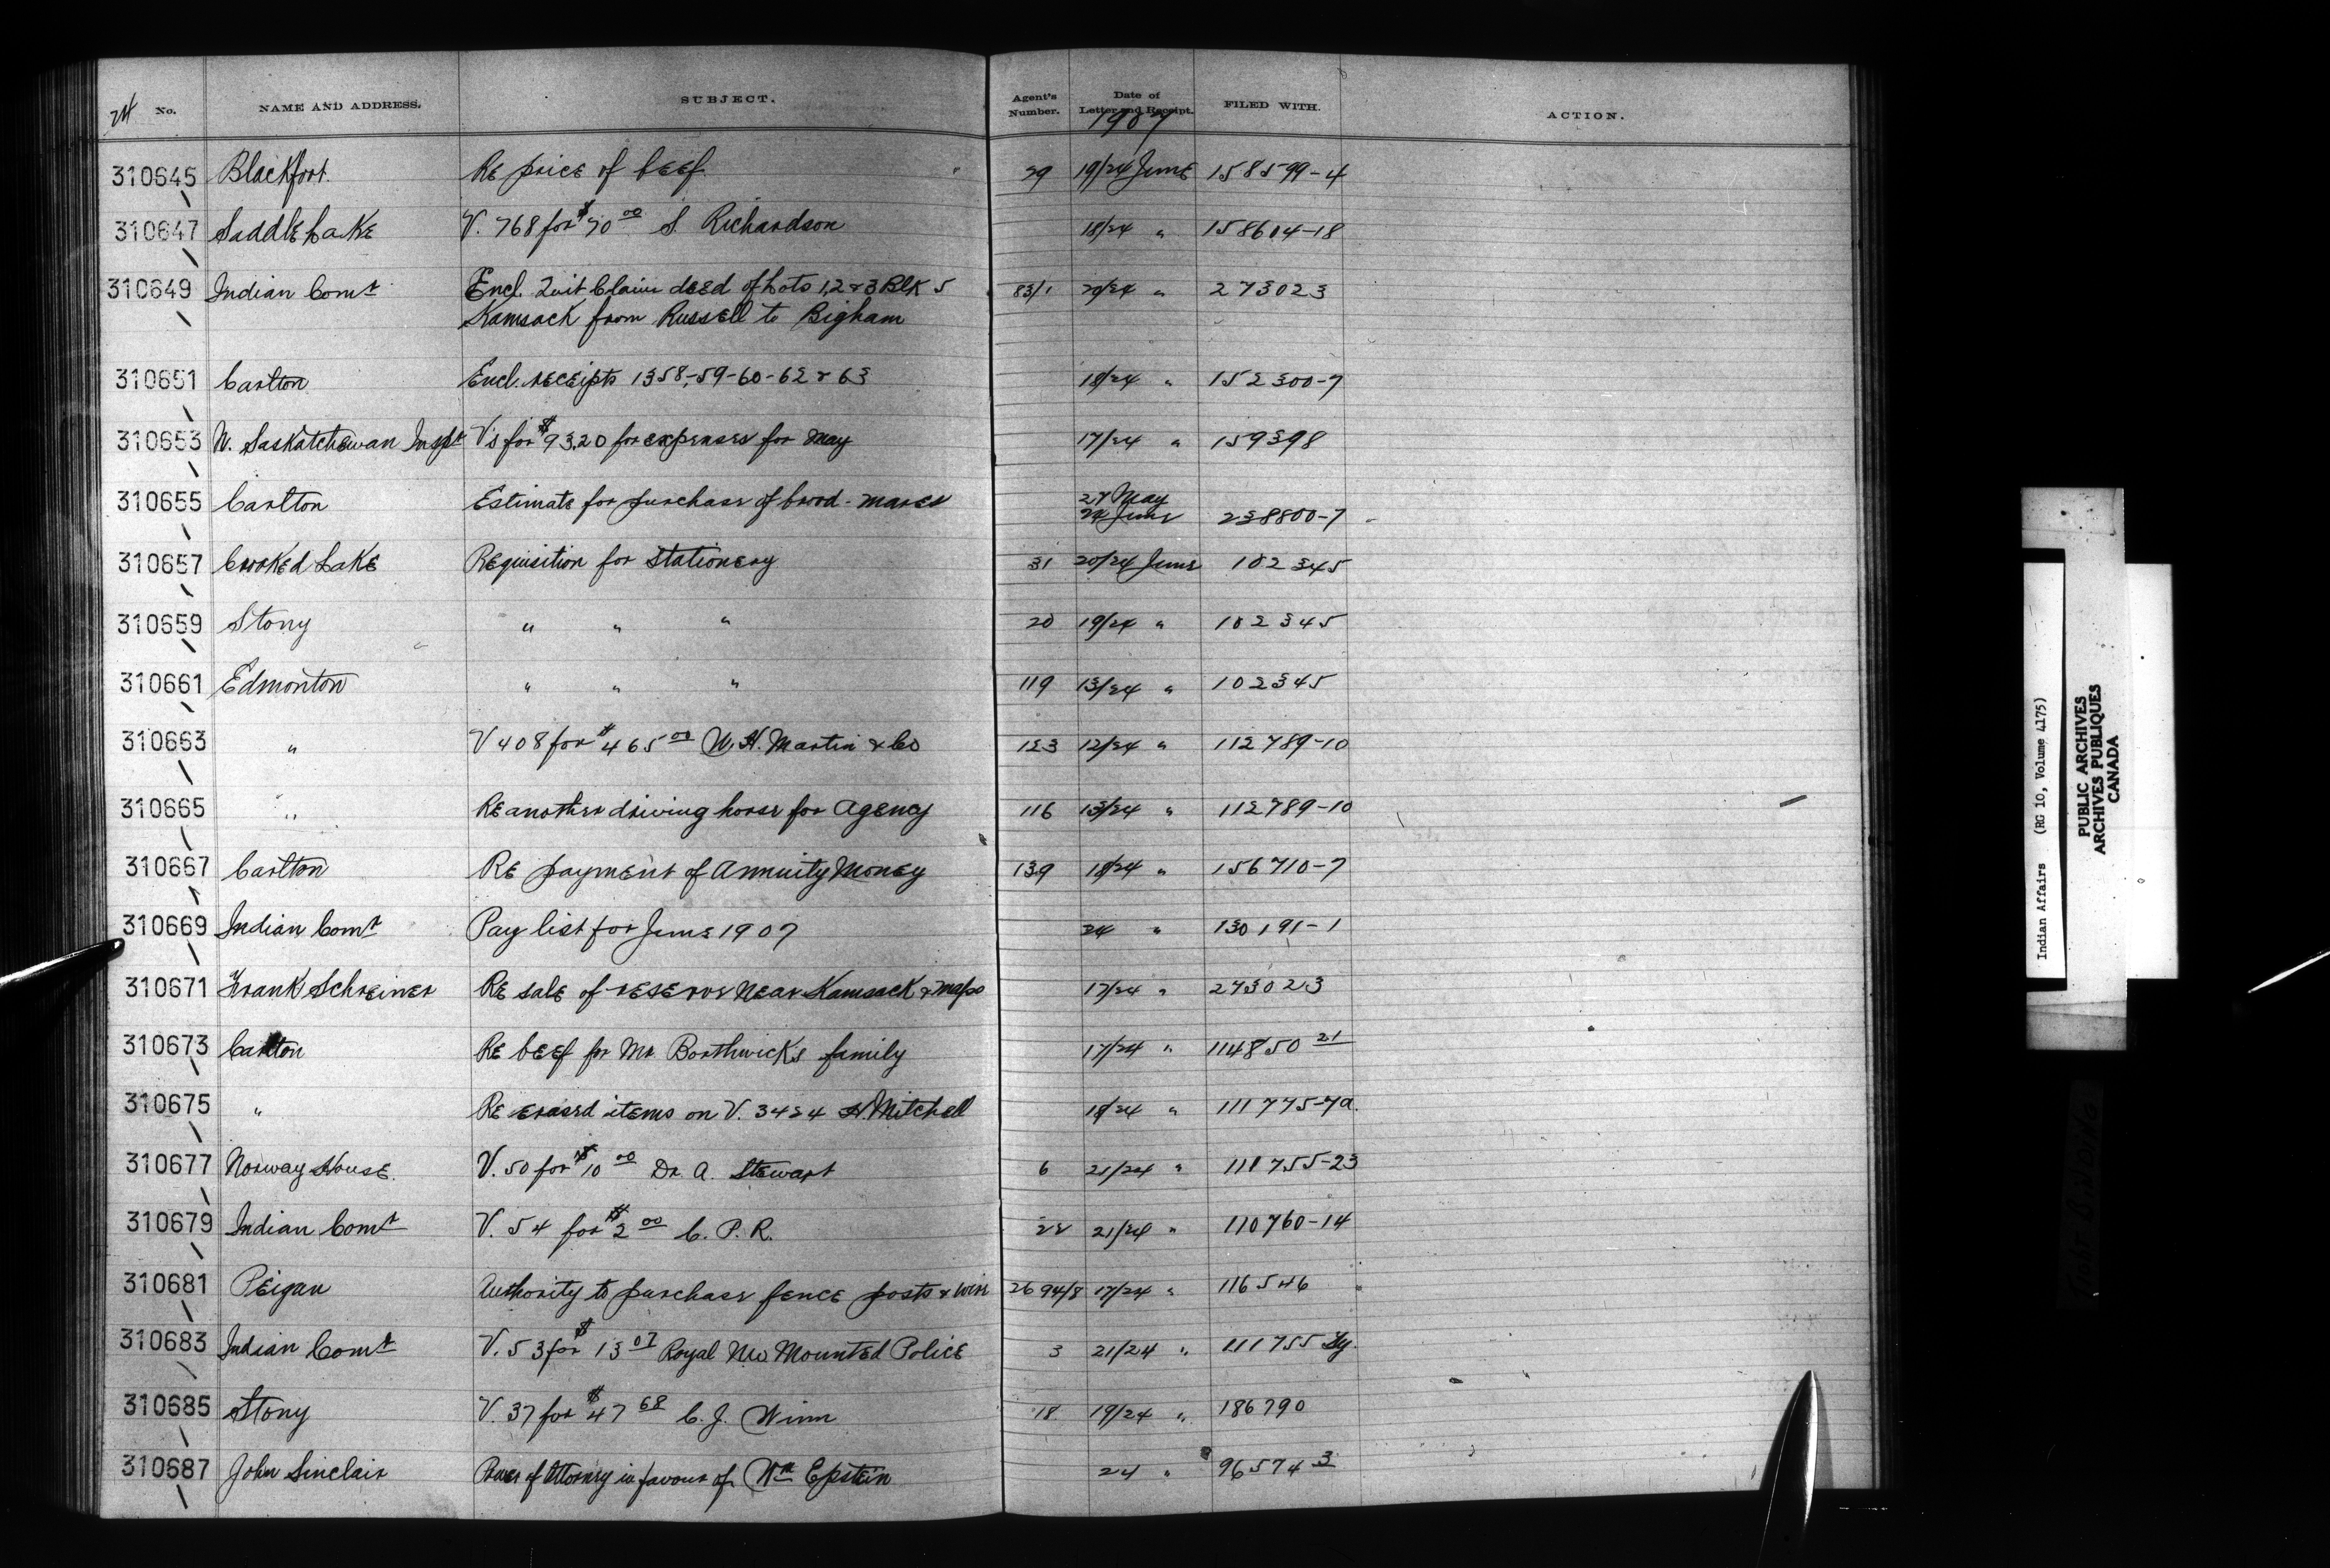 24 No. NAME AND ADDRESS. SUBJECT. Agent's Number. Date of Letter and Receipt. FILED WITH. ACTION.
1907
310645 Blackfoot Re price of beef 29 19/24 June 158599-4
310647 Saddle Lake V. 768 for $70 00 S. Richardson 18/24 " 158604-18
310649 Indian Comr Encl. Quit Claim deed of Lots 1,2 & 3 Blk 5 83/1 20/24 " 273023
Kamsack from Russell to Bigham
310651 Carlton Encl. receipts 1358,-59-60-62 & 63 18/24 " 152300-7
310653 N. Saskatchewan Inspt V's for $93.20 for expenses for May 17/24 " 159398
310655 Carlton Estimate for purchase of brood-mares 27 May
24 June 238800-7
310657 Crooked Lake Requisition for Stationery 31 20/24 June 102345
310659 Stony " " " 20 19/24 " 102345
310661 Edmonton " " " 119 13/24 " 102345
310663 " V 408 for $465 00 W. H. Martin & Co 123 12/24 " 112789-10
310665 " Re another driving horse for Agency 116 13/24 " 112789-10
310667 Carlton Re payment of Annuity Money 139 18/24 " 156710-7
310669 Indian Comr Pay list for June 1907 24 " 130191-1
310671 Frank Schreiner Re sale of reserve near Kamsack & maps 17/24 " 273023
310673 Carlton Re beef for Mr Borthwicks family 17/24 " 114850 21
310675 " Re erased items on V. 3424 H. Mitchell 18/24 " 111775-7a.
310677 Norway House. V. 50 for $10 00 Dr. A. Stewart 6 21/24 " 110755-23
310679 Indian Comr V. 54 for $2 00 C. P. R. 22 21/24 " 110760-14
310681 Peigan Authority to purchase fence posts & wire 2694/8 17/24 " 116546
310683 Indian Comr V. 53 for $13 07 Royal NW Mounted Police 3 21/24 " 111755
310685 Stony V. 37 for $47 68 C. J. Winn 18 19/24 " 186790
310687 John Sinclair Power of Attorney in favour of Wm Epstein 24 " 96574 3
Indian Affairs (RG 10, Volume 4175)
PUBLIC ARCHIVES
ARCHIVES PUBLIQUES
CANADA